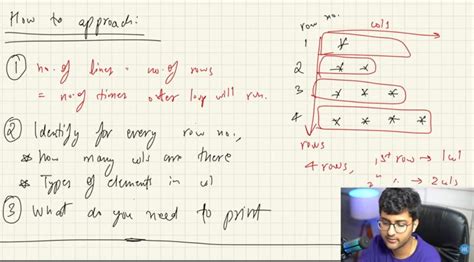 How to approach:
① no. of lines = no. of rows
= no. of times outer loop will run.
② Identify for every row no.,
* how many cols are there
* Types of elements in col
③ What do you need to print
row no.
cols
1 *
2 * *
3 * * *
4 * * * *
rows
4 rows, 1st row → 1 col
→ 2 cols